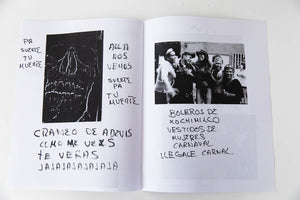 PA
SUERTE
TU
MUERTE
ALLA
NOS
VEMOS
SUERTE
PA
TU
MUERTE
CRANEO DE
COMO ME VES
TE VERAS
JAJAJAJAJAJAJA
BOLEROS DE
XOCHIMILCO
VESTIDOS DE
MUJERES
CARNAVAL
LLEGALE CARNAL